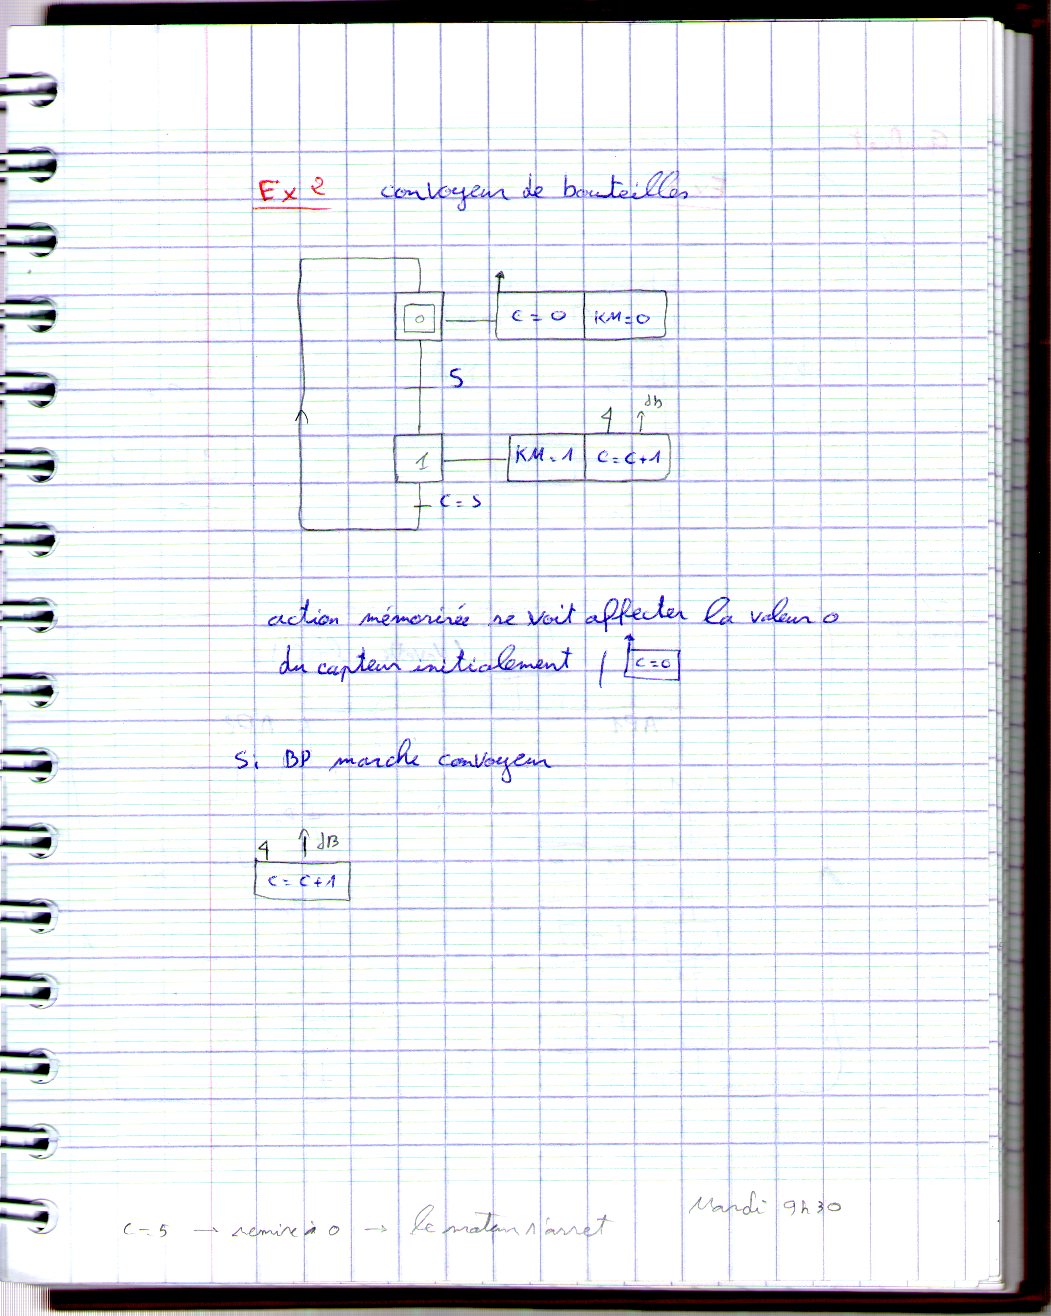 Ex 2 convoyeur de bouteilles
0 C = 0 KM=0
S
dB
1 KM=1 C=C+1
C = 5
action mémorisée se voit affecter la valeur 0
du capteur initialement / C=0
S: BP marche convoyeur
dB
C= C+1
Mardi 9h30
C=5 → remise à 0 → le moteur s'arret